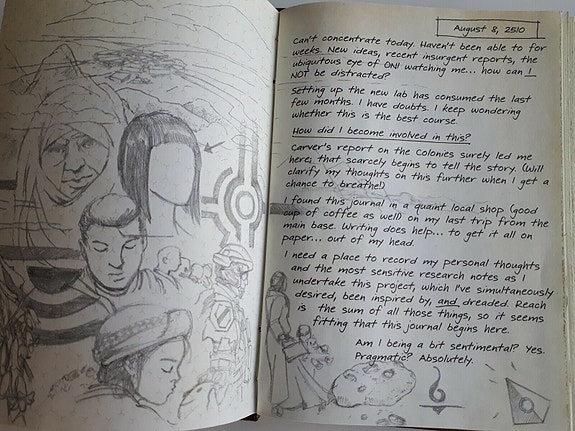 August 8, 2510
Can't concentrate today. Haven't been able to for
weeks. New ideas, recent insurgent reports, the
ubiquitous eye of ONI watching me... how can I
NOT be distracted?
Setting up the new lab has consumed the last
few months. I have doubts. I keep wondering
whether this is the best course.
How did I become involved in this?
Carver's report on the Colonies surely led me
here; that scarcely begins to tell the story. (Will
clarify my thoughts on this further when I get a
chance to breathe!)
I found this journal in a quaint local shop (good
cup of coffee as well) on my last trip from the
main base. Writing does help... to get it all on
paper... out of my head.
I need a place to record my personal thoughts
and the most sensitive research notes as I
undertake this project, which I've simultaneously
desired, been inspired by, and dreaded. Reach
is the sum of all those things, so it seems
fitting that this journal begins here.
Am I being a bit sentimental? Yes.
Pragmatic? Absolutely.